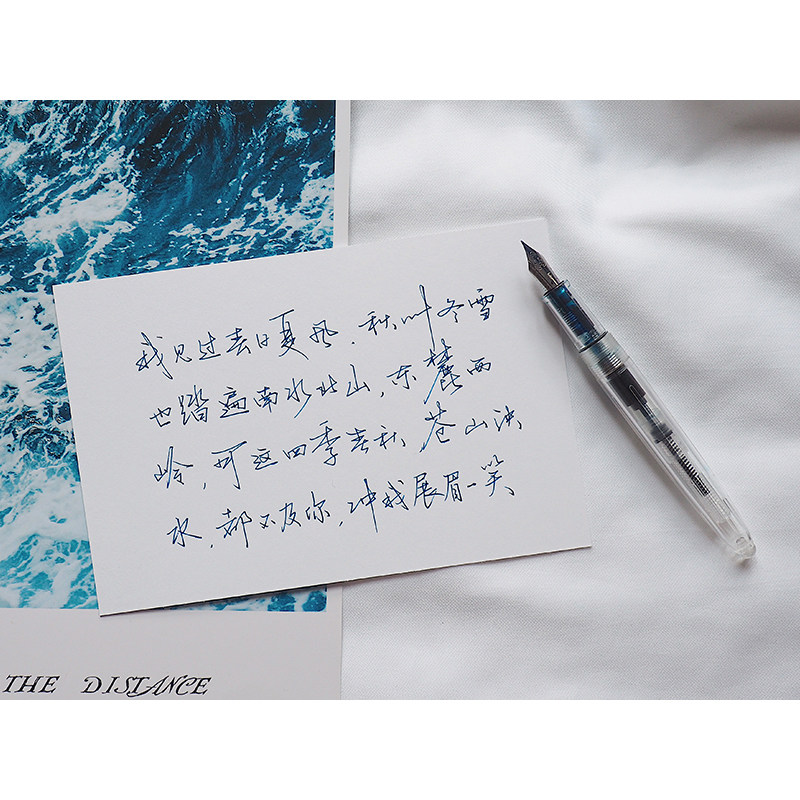 我见过春日夏风、秋叶冬雪
也踏遍南水北山,东麓西
岭,可这四季春秋 苍山泱
水,都不及你,冲我展眉一笑、
THE DISTANCE